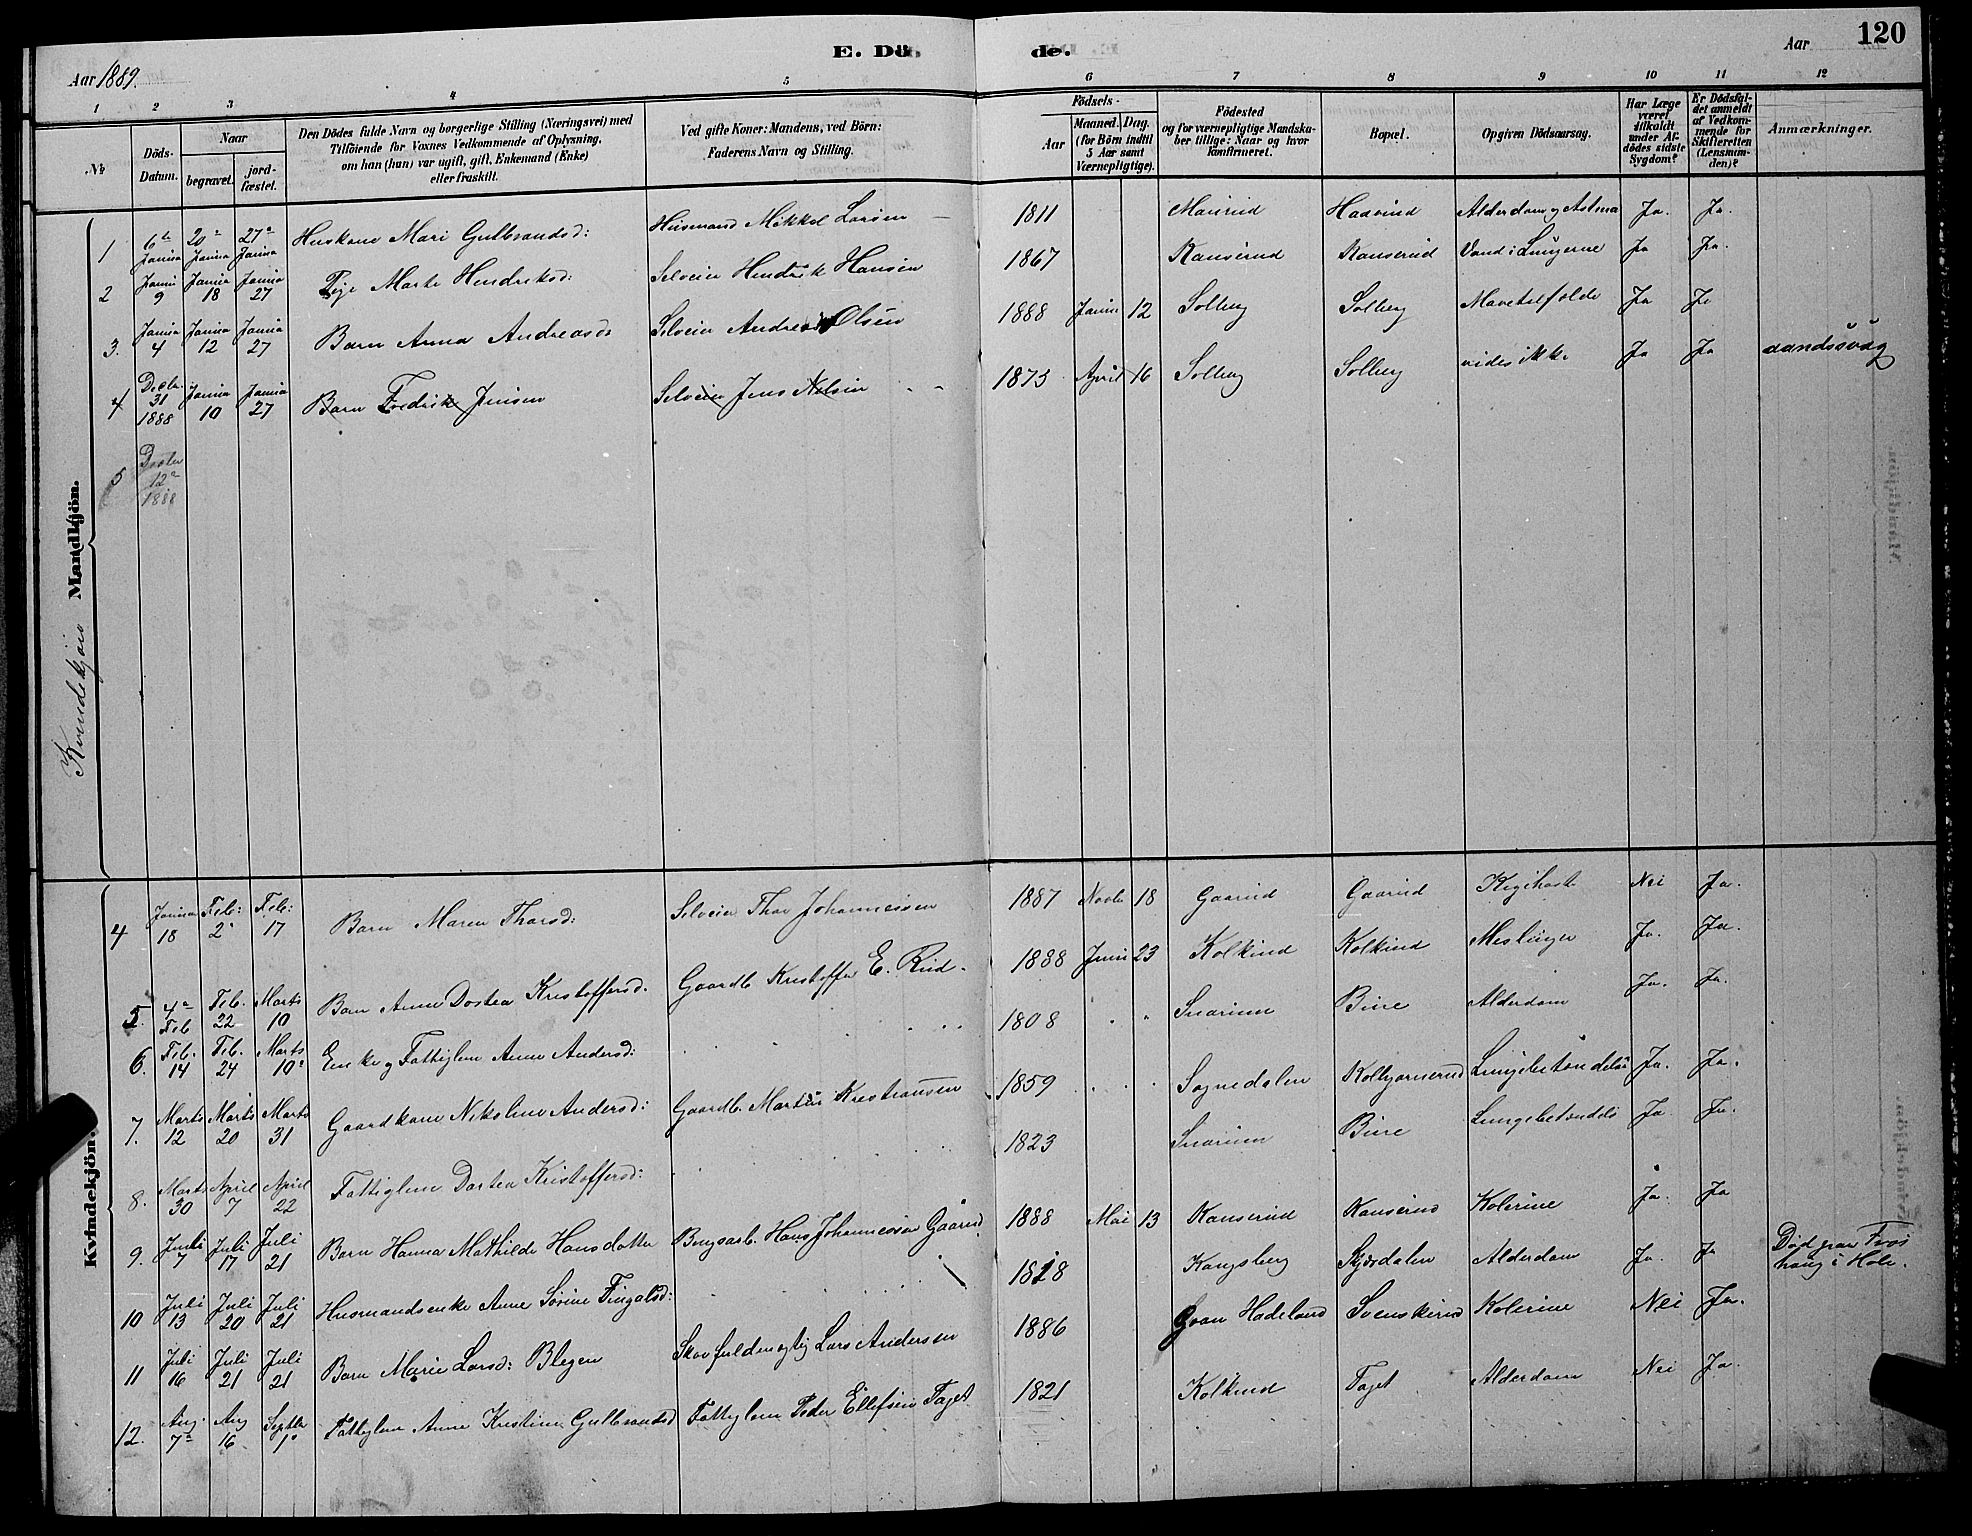 E. Dö de.
120
Aar 1889.
Aar
1 2 3 4 5 6 7 8 9 10 11 12
№
Döds-Datum.
Naar
begravet.
jord-fæstet.
Den Dödes fulde Navn og borgerlige Stilling (Næringsvei) med
Tilföiende for Voxnes Vedkommende af Oplysning,
om han (hun) var ugift, gift, Enkemand (Enke)
eller fraskilt.
Ved gifte Koner: Mandens, ved Börn:
Faderens Navn og Stilling.
Födsels-
Aar
Maaned. Dag.
(for Börn indtil
5 Aar samt
Værnepligtige).
Födested
og for værnepligtige Mandska-
ber tillige: Naar og hvor
konfirmeret.
Bopæl.
Opgiven Dödsaarsag.
Har Læge
været
tilkaldt
under Af-
dödes sidste
Sygdom?
Er Dödsfal-
det anmeldt
af Vedkom-
mende for
Skifteretten
(Lensman-
den)?
Anmærkninger.
Kvindekjøn Mandkjön.
1 6te Janua 20de Janua 27de Janua Huskone Mari Gulbrandsd: Husmand Mikkel Larsen 1811 Haavind Alderdom og Astma Ja. Ja.
2 Janu 9 Janua 18 Janua 27 Pige Marte Hendriksd: Selveier Hendrik Hansen 1867 Kanserud Kanserud Vand i Lungerne Ja Ja.
3. Janua 4 Janua 12 Janua 27 Barn Anna Andreasd: Selveier Andreas Olsen 1888 Janu 12 Solberg Solberg Ja Ja
4 Decbr. 31 1888 Janua 10 Janua 27 Barn Fredrik Jensen Selveier Jens Nelsen 1873 April 16 Solberg Solberg vides ikke Ja Ja aandssvag
5 12te 1888
Kvindekjön.
4 Janua 18 Feb: 2 Feb: 17 Barn Maren Thorsd: Selveier Thor Johannessen 1887 Novb 18 Gaarud Gaarud Kighoste Nei Ja.
5. 4de Feb Feb. 22 Marts 10 Barn Anne Dortea Kristoffersd. Gaardb. Kristoffer E. Rud. 1888 Juni 23 Kolkind Kolkind Meslinger Ja. Ja.
6. Feb. 14 Feb. 24 Marts 10de Enke og Fattiglem Anne Andersd: 1808 Snarum Bure Alderdom Ja. Ja.
7. Marts 12 Marts 20 Marts 31 Gaardkone Nikoline Andersd: Gaardb. Martin Kristiansen 1859 Sognedalen Kolbjornerud Lungebetændelse Ja. Ja.
8. Marts 30 April 7 April 22 Fattiglem Dortea Kristoffersd: 1823 Snarum Bure Lungebetændels Ja. Ja.
9. Juli 7 Juli 17 Juli 21 Barn Hanna Mathilde Hansdatter Brugsarb. Hans Johannessen Gaarud 1888 Mai 13 Kanserud Kanserud Kolerine Ja. Ja
10 Juli 13 Juli 20 Juli 21 Husmandsenke Anne Sørine Fingalsd: 1818 Kongsberg Skjærdalen Alderdom Ja. Ja Død paa
haug i Hole.
11 Juli 16 Juli 21 Juli 21 Barn Marie Larsd: Blegen Skovfuldmægtig Lars Andersen 1886 Gran Hadeland Svenskerud Kolerine Nei Ja.
12. Aug. 7de Aug 16 Septbr 1 Fattiglem Anne Kristine Gulbrandsd Fattiglem Peder Ellefsen Faget 1821 Kolkind Faget Alderdom Nei Ja.